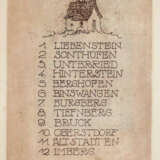 1 LIEBENSTEIN
2 SONTHOFEN
3 UNTERRIED
4 HINTERSTEIN
5 BERGHOFEN
6 BINSWANGEN
7 BURGBERG
8 TIEFNBERG
9 BRUCK
10 OBERSTDORF
11 ALTSTÄDTEN
12 IMBERG